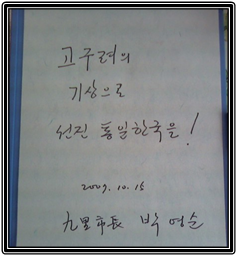 고구려의
기상으로
선진 통일한국을!
2009. 10. 16
九里市長 박영순